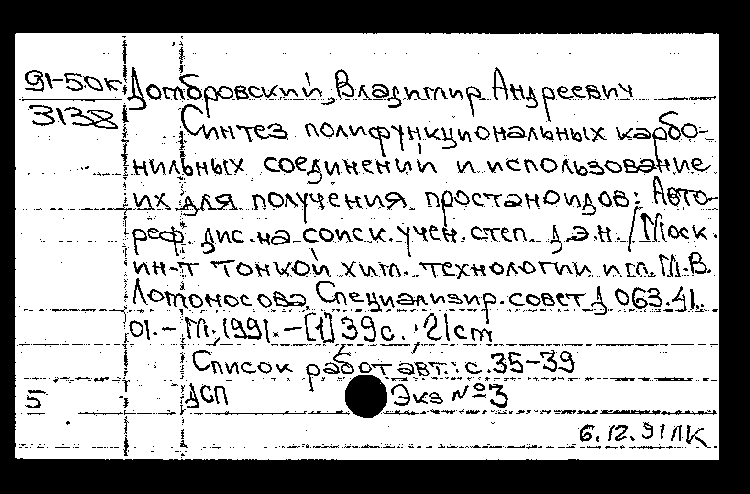 91-50к Домбровский, Владимир Андреевич
3138
Синтез полифункциональных карбо-
нильных соединений и использование
их для получения простаноидов: Авто-
реф. дис. на соиск. учен. степ. д.х.н. / Моск.
ин-т тонкой хим. технологии им. М.В.
Ломоносова. Специализир. совет Д 063.41.
01. - М., 1991. - [1] 39 с.; 21 см
Список работ авт.: с. 35-39
5 ДСП Экз №3
6.12.91 ЛК